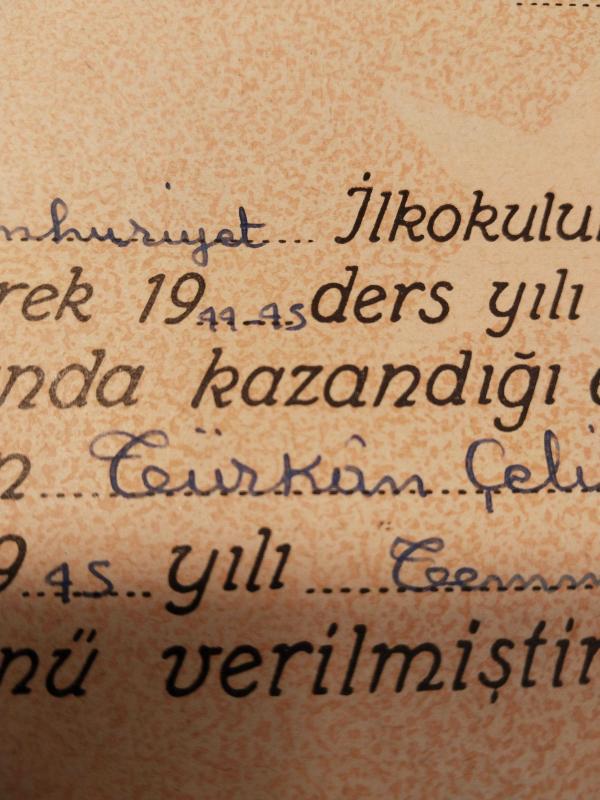 mhuriyet.... İlkokulu
rek 1944-45 ders yılı
nda kazandığı
Türkân Çeli
945 yılı .... Temm
nü verilmiştir